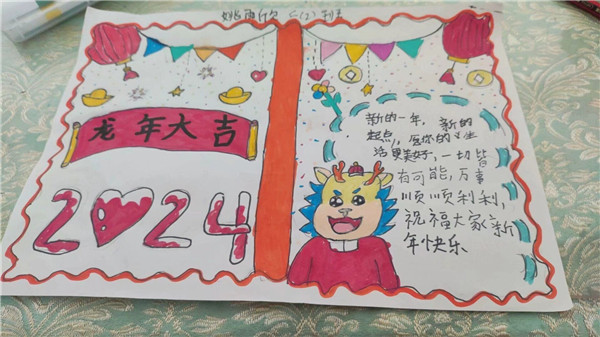 姚雨欣 5(2)班
龙年大吉
2024
新的一年，新的
起点，愿你的生
活更美好，一切皆
有可能，万事
顺顺利利，
祝福大家新
年快乐